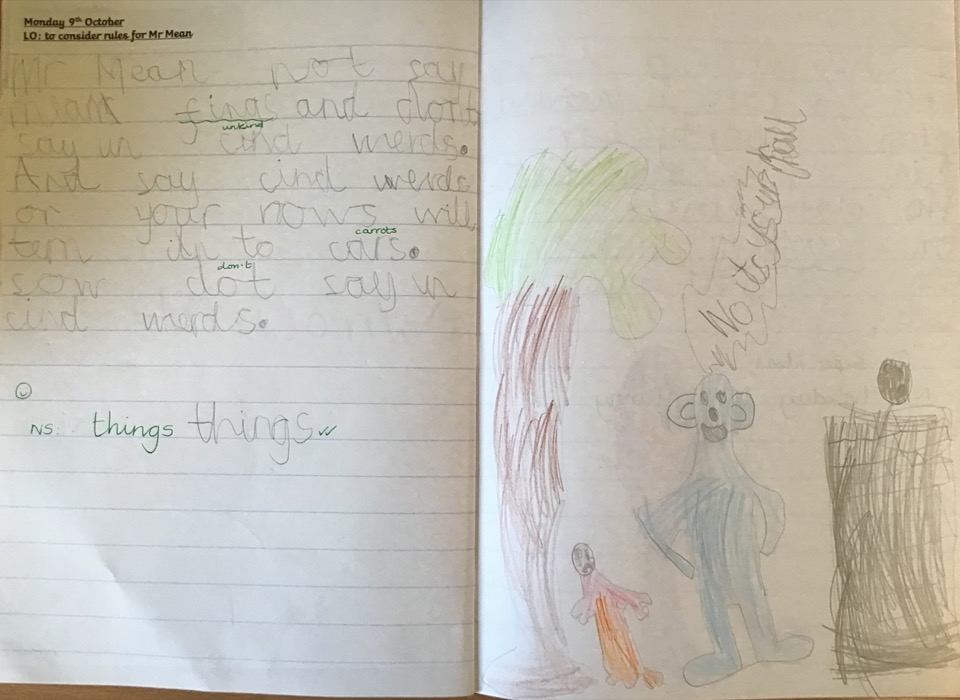 Monday 9th October
LO: to consider rules for Mr Mean
Mr Mean not say
mean fings and dont
unkind
say un cind werds.
And say cind werds
or your nows will
carrots
tern in to cars.
don't
sow dot say un
cind werds.
NS: things things
No its ysur